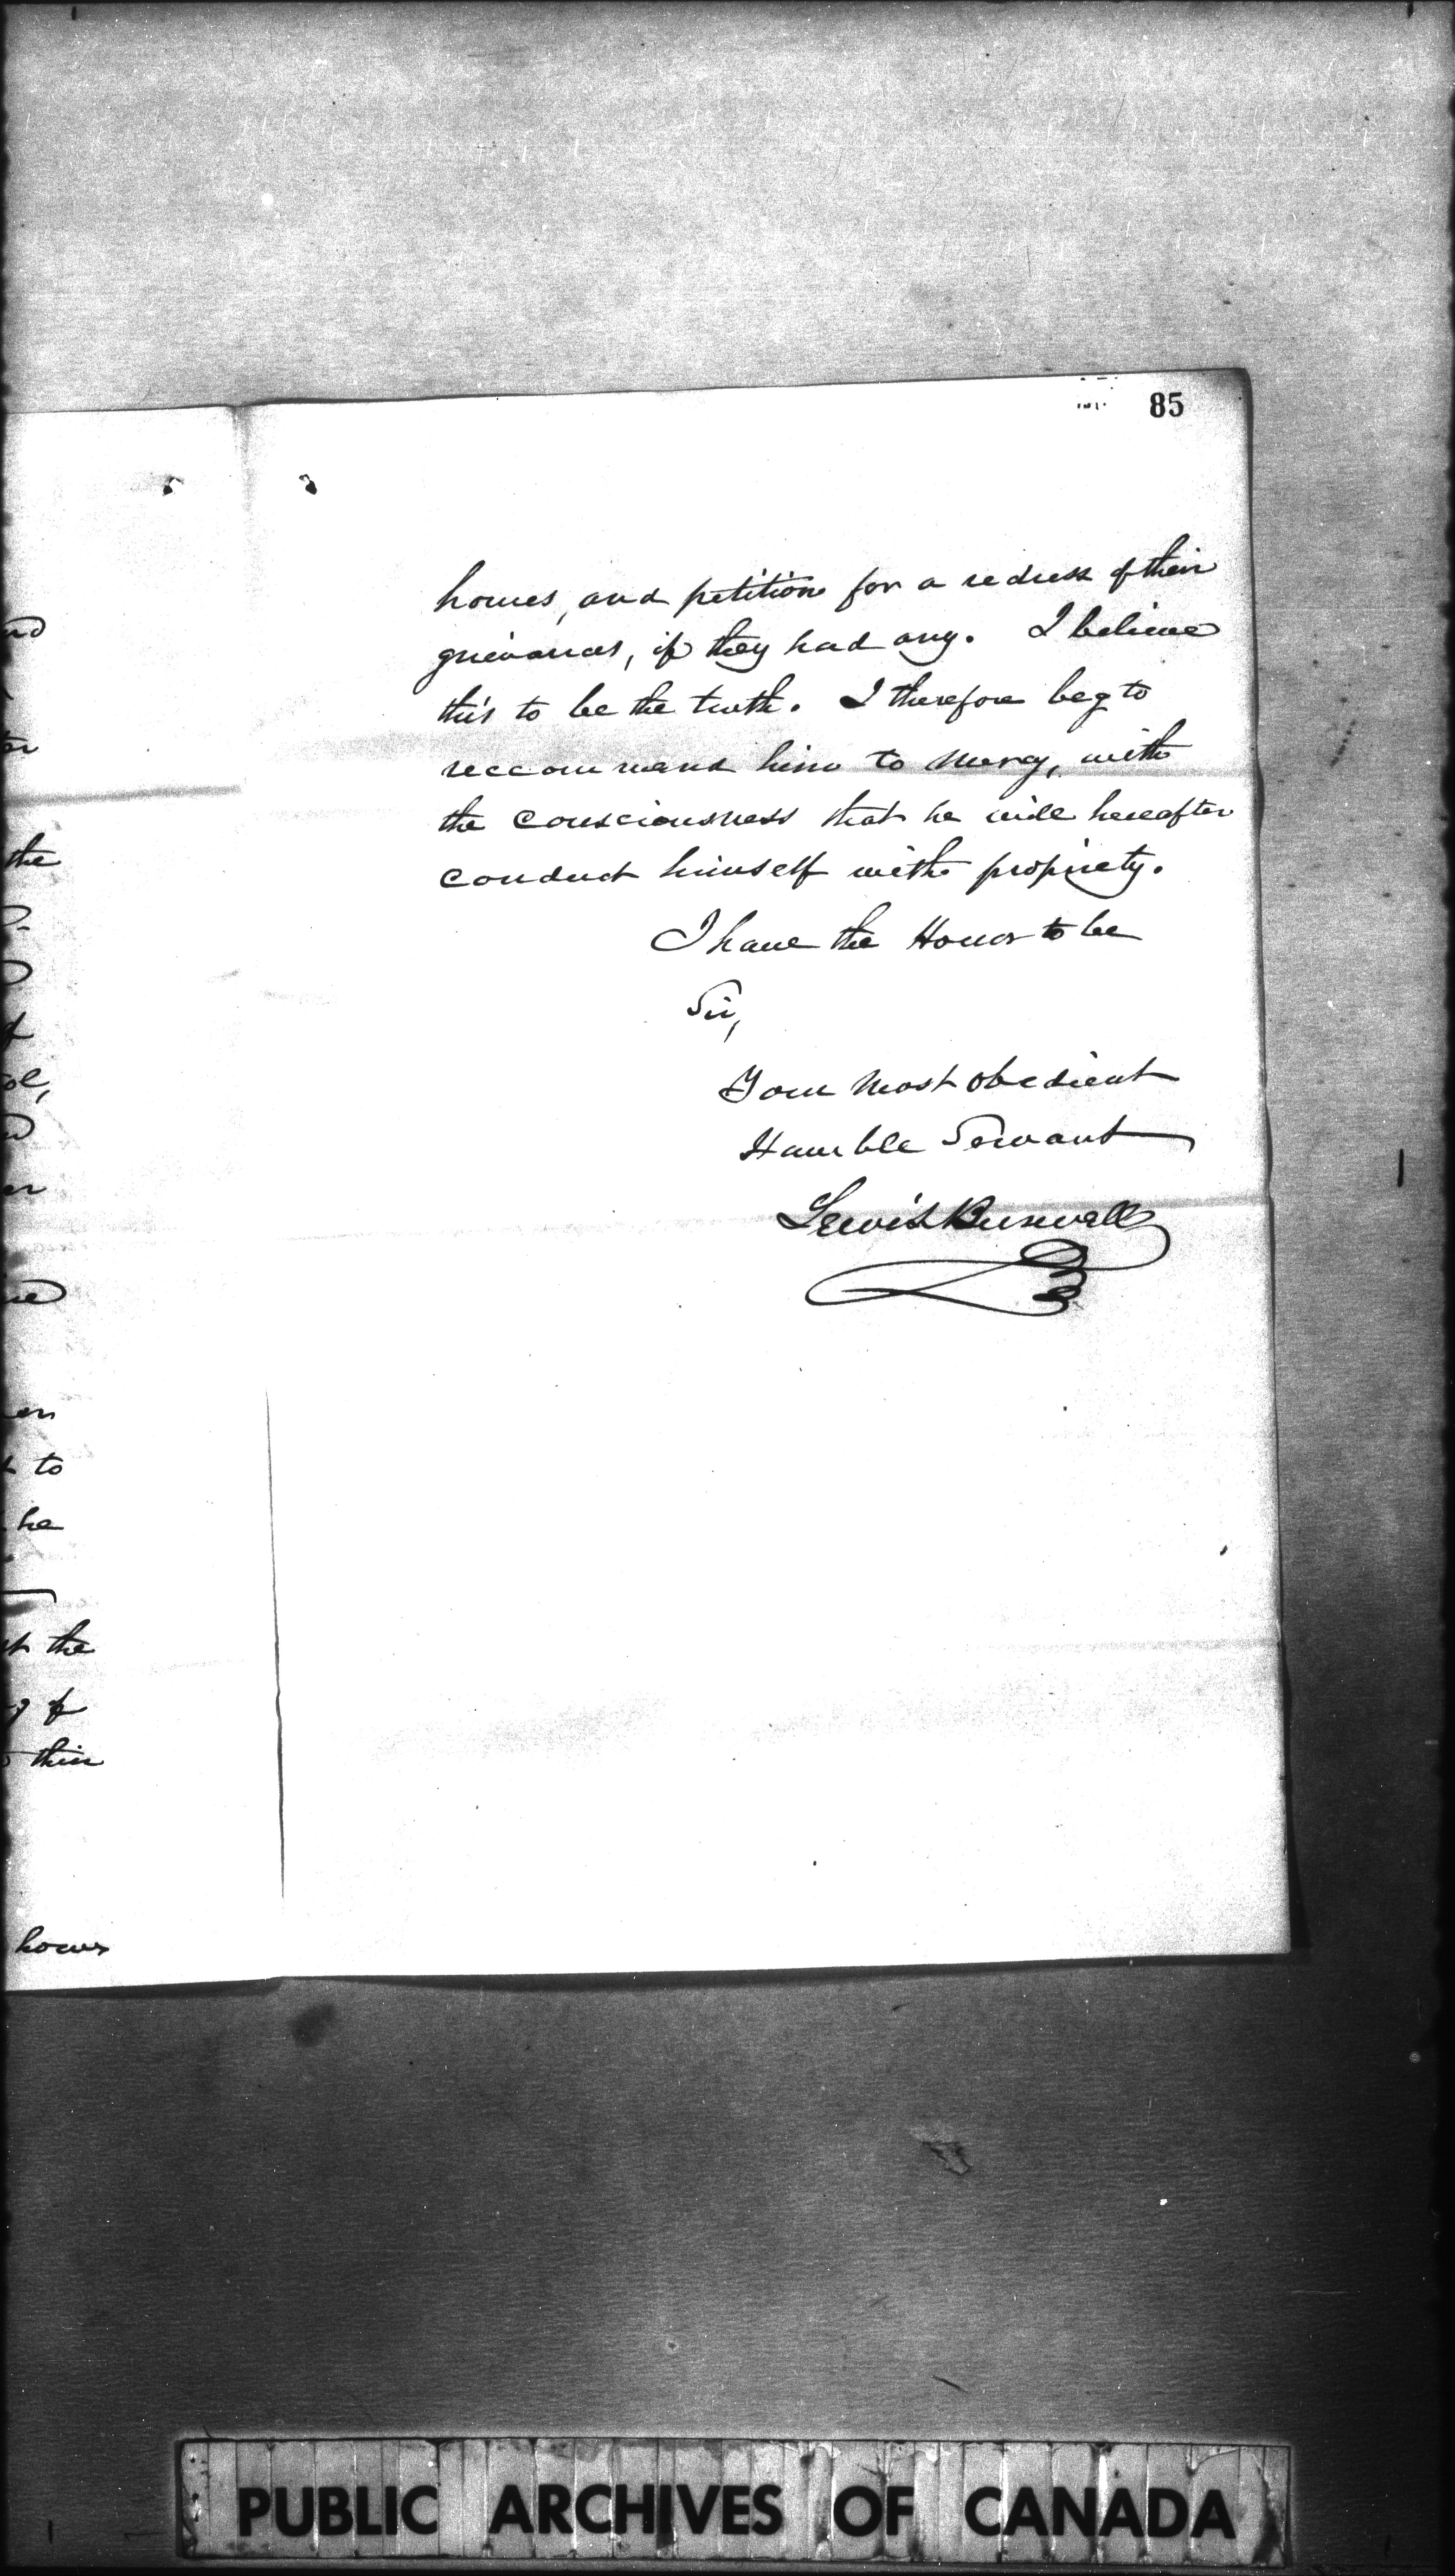 85
homes, and petition for a redress of their
grievances, if they had any. I believe
this to be the truth. I therefore beg to
reccommend him to mercy, with
the consciousness that he will hereafter
conduct himself with propriety.
I have the Honor to be
Sir,
Your most obedient
Humble Servant
Lewis Burwell
the
er
to
he
the
of
their
homes
PUBLIC ARCHIVES OF CANADA